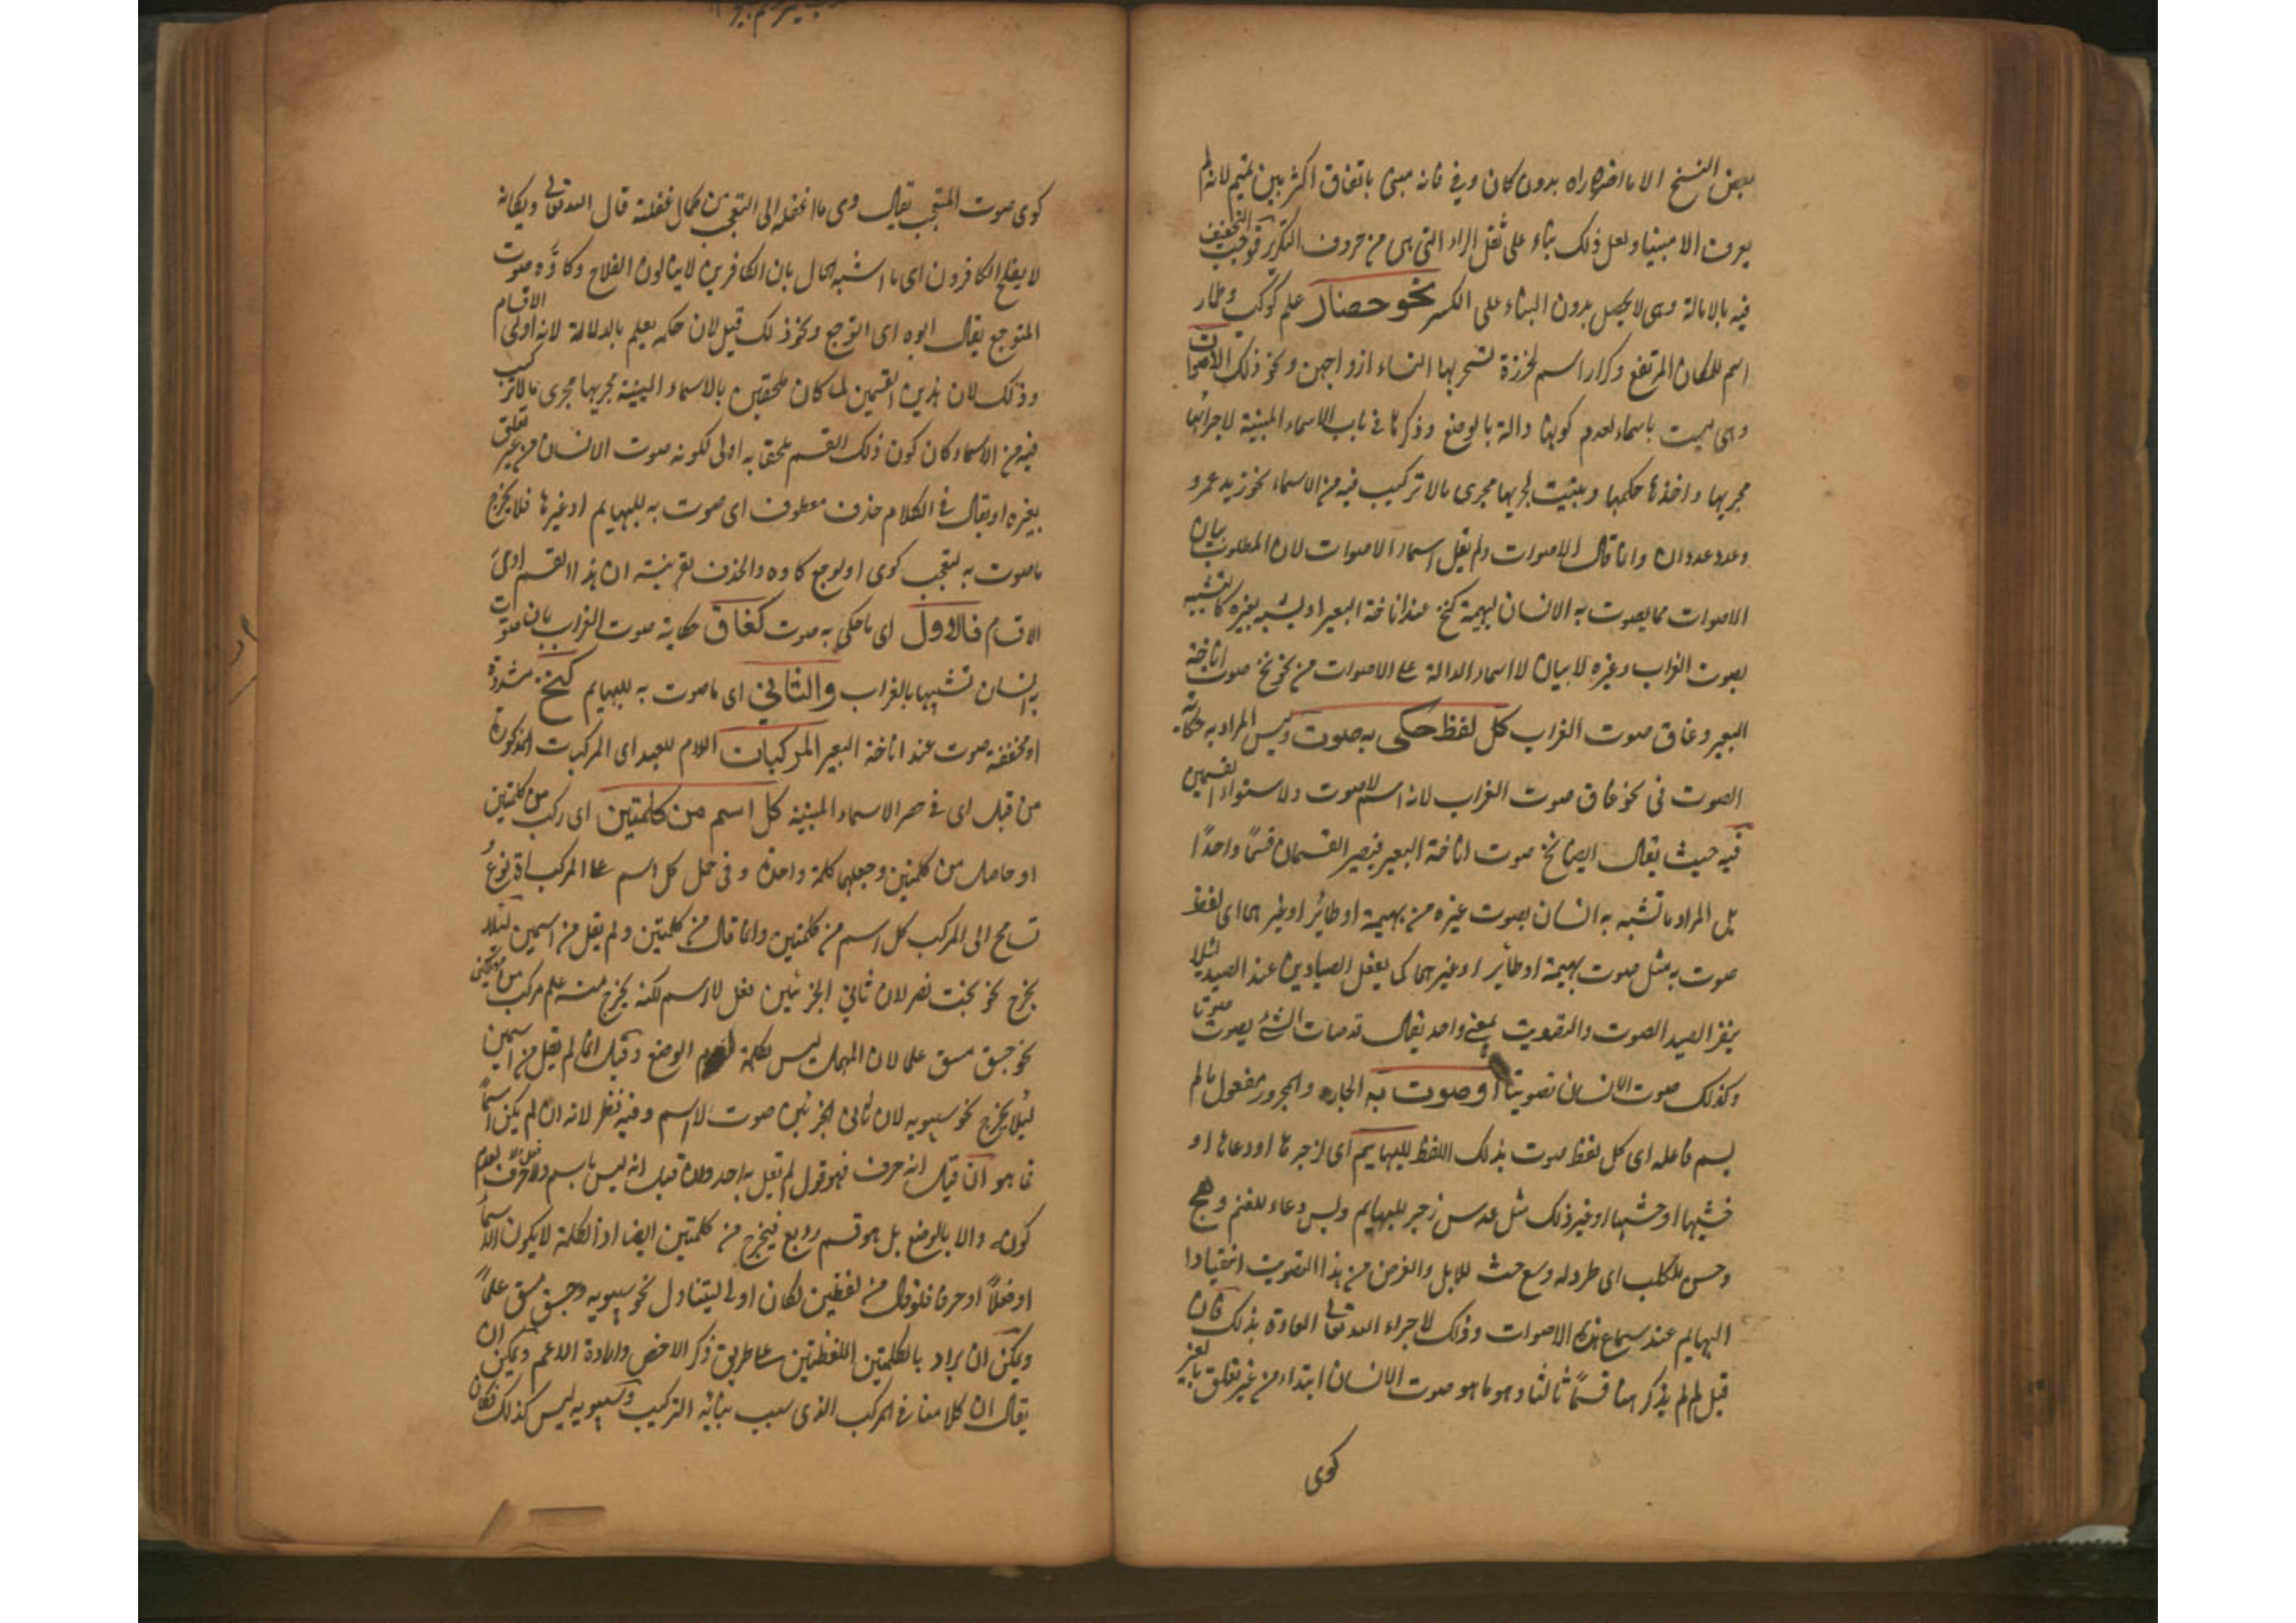 بعض النسخ الا ما اخره راء بدون كان وفى فانه مبنى باتفاق اكثر بين تميم لانه لم
يعرف الا مبنيا ولعل ذلك بناء على ثقل الراء التى هى من حروف التكرير فوجب التخفيف
فيه بالامالة وهى لا يحصل بدون البناء على الكسر نحو حضار علم كوكب وطمار
اسم للمكان المرتفع وكرار اسم لخرزة تسحر بها النساء ازواجهن ونحو ذلك الاصوات
وهى ليست باسماء لعدم كونها دالة بالوضع وذكرها فى باب الاسماء المبنية لاجرائها
مجريها واخذها حكمها وبنيت لجريها مجرى ما لا تركيب فيه من الاسماء نحو زيد عمرو
وعدد عددان وانما قال الاصوات ولم يقل اسماء الاصوات لان المطلوب بيان
الاصوات مما يصوت به الانسان لبهيمة كنخ عند اناخة البعير او ليشبه بغيره كالتشبيه
بصوت الغراب وغيره لا بيان لاسماء الدالة على الاصوات من نحو نخ صوت اناخة
البعير وغاق صوت الغراب كل لفظ حكى به صوت وليس المراد به حكاية
الصوت فى نحو غاق صوت الغراب لانه اسم لا صوت ولاستواء القسمين
فيه حيث يقال ايضا نخ صوت اناخة البعير فيصير القسمان قسمًا واحدًا
بل المراد ما تشبه به انسان بصوت غيره من بهيمة او طائر او غيرهما اى لفظ
صوت به مثل صوت بهيمة او طائر او غيرهما كما يفعل الصيادين عند الصيد لئلا
ينفر الصيد الصوت والتصويت بمعنى واحد يقال قد صات الشئ يصوت صوتا
وكذلك صوت الانسان تصويتا او صوت به الجار والمجرور مفعول ما لم
يسم فاعله اى كل لفظ صوت بذلك اللفظ للبهايم اى لزجرها او دعائها او
وغير ذلك مثل عدس زجر للبهايم وبس دعاء للغنم وهج
وحس للكلب اى طرد له وسع حث للابل والغرض من هذا التصويت انقيادا
البهايم عند سماع هذه الاصوات وذلك لاجراء الله تعالى العادة بذلك فان
قيل لم لم يذكر هنا قسمًا ثالثا وهو ما هو صوت الانسان ابتداء من غير تعلق بالغير
كوى
كوى صوت المتعجب يقال وى ما اغفله الى التعجب من كمال غفلته قال الله تعالى ويكانه
لا يفلح الكافرون اى ما اشبه الحال بان الكافرين لا ينالون الفلاح وكاوّه صوت
المتوجع يقال اوه اى اتوجع ونحو ذلك قيل لان حكمه يعلم بالدلالة لانه اولى الاقسام
وذلك لان هذين القسمين لما كان ملحقين بالاسماء المبنية مجريها مجرى ما لا تركيب
فيه من الاسماء كان كون ذلك القسم ملحقا به اولى لكونه صوت الانسان من غير تعلق
بغيره او يقال فى الكلام حذف معطوف اى صوت به للبهايم او غيرها فلا يخرج
ما صوت به لتعجب كوى او لوجع كاوه والحذف بقرينة ان هذا القسم
الاقسام فالاول اى ما حكى به صوت كغاق حكاية صوت الغراب بان صوت
به انسان تشبيها بالغراب والثانى اى ما صوت به للبهايم كنخ مشددة
او مخففة صوت عند اناخة البعير المركبات اللام للعهد اى المركبات المذكورة
من قبل اى فى حصر الاسماء المبنية كل اسم من كلمتين اى ركب من كلمتين
او حاصل من كلمتين وجعلهما كلمة واحدة وفى حمل كل اسم على المركبات نوع
تسامح اى المركب كل اسم من كلمتين وانما قال من كلمتين ولم يقل من اسمين لئلا
يخرج نحو بخت نصر لان ثانى الجزئين فعل لا اسم لكنه يخرج منه علم مركب من مهملتين
نحو جسق مسق علما لان المهملة ليس بكلمة لعدم الوضع وقيل انما لم يقل من اسمين
لئلا يخرج نحو سيبويه لان ثانى الجزئين صوت لا اسم وفيه نظر لانه ان لم يكن اسمًا
فما هو ان قيل انه حرف فهو قول لم يقل به احد وان قيل انه ليس باسم ولا حرف لعدم
كونه دالا بالوضع بل هو قسم رابع فيخرج من كلمتين ايضا اذ الكلمة لا يكون الا اسما
او فعلاً او حرفا فلو قال من لفظين لكان اولى ليتناول نحو سيبويه وجسق مسق علمًا
ويمكن ان يراد بالكلمتين اللفظتين على طريق ذكر الاخص وارادة الاعم ويمكن ان
يقال ان كلامنا فى المركب الذى سبب بنائه التركيب وسيبويه ليس كذلك فكان